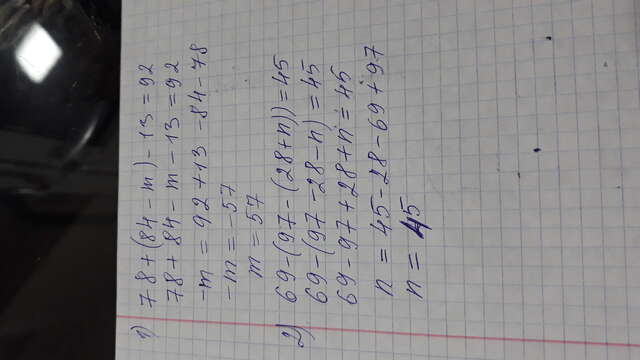 1) 78+(84-m)-13=92
78+84-m-13=92
-m = 92+13-84-78
-m = -57
m = 57
2) 69-(97-(28+n))=45
69-(97-28-n)=45
69-97+28+n=45
n = 45-28-69+97
n = 45